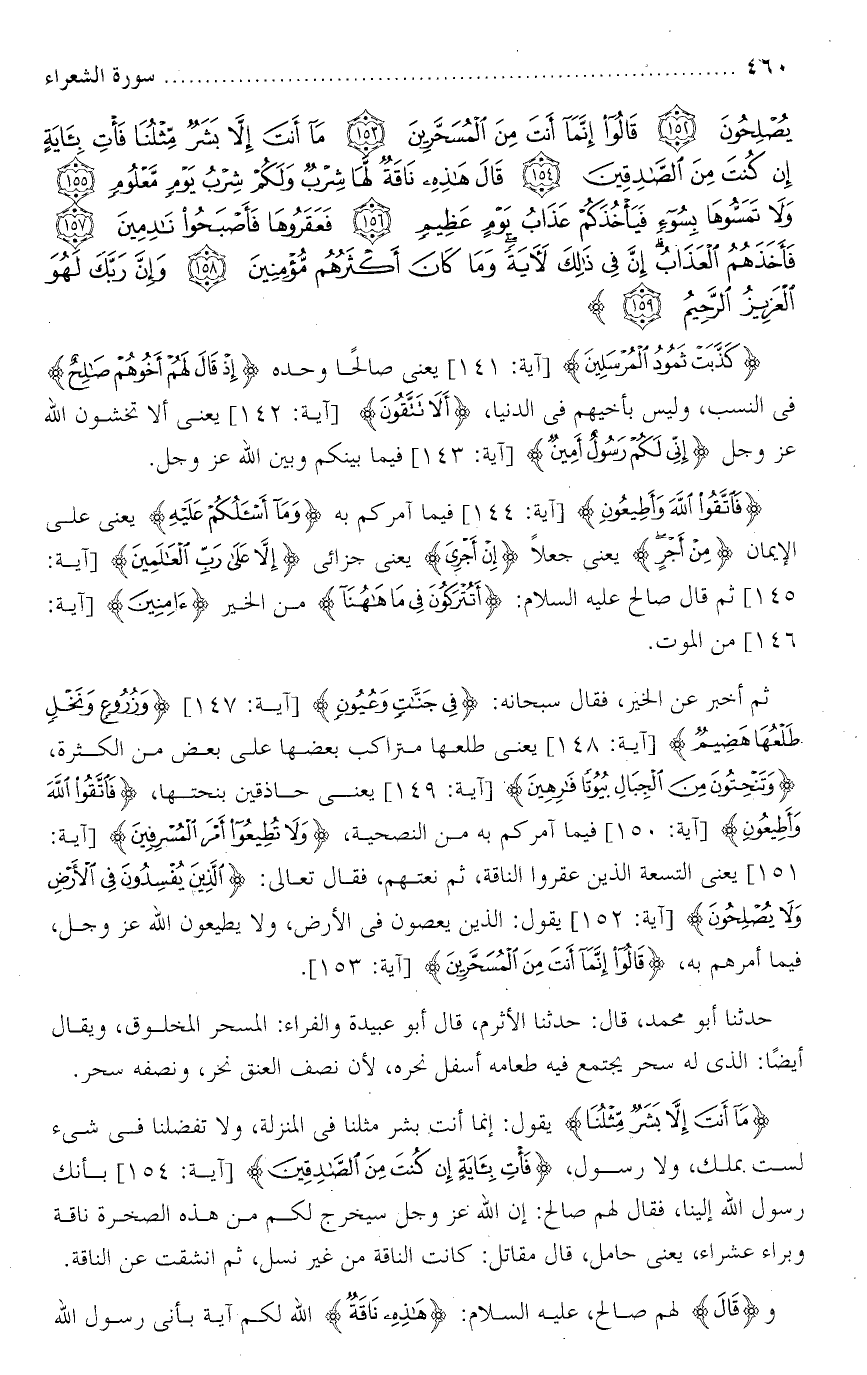 ٤٦٠ ........ سورة الشعراء
يُصْلِحُونَ ﴿١٥٢﴾ قَالُوٓا۟ إِنَّمَآ أَنتَ مِنَ ٱلْمُسَحَّرِينَ ﴿١٥٣﴾ مَآ أَنتَ إِلَّا بَشَرٌ مِّثْلُنَا فَأْتِ بِـَٔايَةٍ
إِن كُنتَ مِنَ ٱلصَّـٰدِقِينَ ﴿١٥٤﴾ قَالَ هَـٰذِهِۦ نَاقَةٌ لَّهَا شِرْبٌ وَلَكُمْ شِرْبُ يَوْمٍ مَّعْلُومٍ ﴿١٥٥﴾
وَلَا تَمَسُّوهَا بِسُوٓءٍ فَيَأْخُذَكُمْ عَذَابُ يَوْمٍ عَظِيمٍ ﴿١٥٦﴾ فَعَقَرُوهَا فَأَصْبَحُوا۟ نَـٰدِمِينَ ﴿١٥٧﴾
فَأَخَذَهُمُ ٱلْعَذَابُ ۗ إِنَّ فِى ذَٰلِكَ لَـَٔايَةً ۖ وَمَا كَانَ أَكْثَرُهُم مُّؤْمِنِينَ ﴿١٥٨﴾ وَإِنَّ رَبَّكَ لَهُوَ
ٱلْعَزِيزُ ٱلرَّحِيمُ ﴿١٥٩﴾ ﴾
﴿كَذَّبَتْ ثَمُودُ ٱلْمُرْسَلِينَ﴾ [آية: ١٤١] يعنى صالحًا وحده ﴿إِذْ قَالَ لَهُمْ أَخُوهُمْ صَـٰلِحٌ﴾
فى النسب، وليس بأخيهم فى الدنيا، ﴿أَلَا تَتَّقُونَ﴾ [آية: ١٤٢] يعنى ألا تخشون الله
عز وجل ﴿إِنِّى لَكُمْ رَسُولٌ أَمِينٌ﴾ [آية: ١٤٣] فيما بينكم وبين الله عز وجل.
﴿فَٱتَّقُوا۟ ٱللَّهَ وَأَطِيعُونِ﴾ [آية: ١٤٤] فيما آمركم به ﴿وَمَآ أَسْـَٔلُكُمْ عَلَيْهِ﴾ يعنى على
الإيمان ﴿مِنْ أَجْرٍ ۖ﴾ يعنى جعلاً ﴿إِنْ أَجْرِىَ﴾ يعنى جزائى ﴿إِلَّا عَلَىٰ رَبِّ ٱلْعَـٰلَمِينَ﴾ [آية:
١٤٥] ثم قال صالح عليه السلام: ﴿أَتُتْرَكُونَ فِى مَا هَـٰهُنَآ﴾ من الخير ﴿ءَامِنِينَ﴾ [آية:
١٤٦] من الموت.
ثم أخبر عن الخير، فقال سبحانه: ﴿فِى جَنَّـٰتٍ وَعُيُونٍ﴾ [آية: ١٤٧] ﴿وَزُرُوعٍ وَنَخْلٍ
طَلْعُهَا هَضِيمٌ﴾ [آية: ١٤٨] يعنى طلعها متراكب بعضها على بعض من الكثرة،
﴿وَتَنْحِتُونَ مِنَ ٱلْجِبَالِ بُيُوتًا فَـٰرِهِينَ﴾ [آية: ١٤٩] يعنى حاذقين بنحتها، ﴿فَٱتَّقُوا۟ ٱللَّهَ
وَأَطِيعُونِ﴾ [آية: ١٥٠] فيما آمركم به من النصحية، ﴿وَلَا تُطِيعُوٓا۟ أَمْرَ ٱلْمُسْرِفِينَ﴾ [آية:
١٥١] يعنى التسعة الذين عقروا الناقة، ثم نعتهم، فقال تعالى: ﴿ٱلَّذِينَ يُفْسِدُونَ فِى ٱلْأَرْضِ
وَلَا يُصْلِحُونَ﴾ [آية: ١٥٢] يقول: الذين يعصون فى الأرض، ولا يطيعون الله عز وجل،
فيما أمرهم به، ﴿قَالُوٓا۟ إِنَّمَآ أَنتَ مِنَ ٱلْمُسَحَّرِينَ﴾ [آية: ١٥٣].
حدثنا أبو محمد، قال: حدثنا الأثرم، قال أبو عبيدة والفراء: المسحر المخلوق، ويقال
أيضًا: الذى له سحر يجتمع فيه طعامه أسفل نحره، لأن نصف العنق نحر، ونصفه سحر.
﴿مَآ أَنتَ إِلَّا بَشَرٌ مِّثْلُنَا﴾ يقول: إنما أنت بشر مثلنا فى المنزلة، ولا تفضلنا فى شىء
لست بملك، ولا رسول، ﴿فَأْتِ بِـَٔايَةٍ إِن كُنتَ مِنَ ٱلصَّـٰدِقِينَ﴾ [آية: ١٥٤] بأنك
رسول الله إلينا، فقال لهم صالح: إن الله عز وجل سيخرج لكم من هذه الصخرة ناقة
وبراء عشراء، يعنى حامل، قال مقاتل: كانت الناقة من غير نسل، ثم انشقت عن الناقة.
و ﴿قَالَ﴾ لهم صالح، عليه السلام: ﴿هَـٰذِهِۦ نَاقَةٌ﴾ الله لكم آية بأنى رسول الله